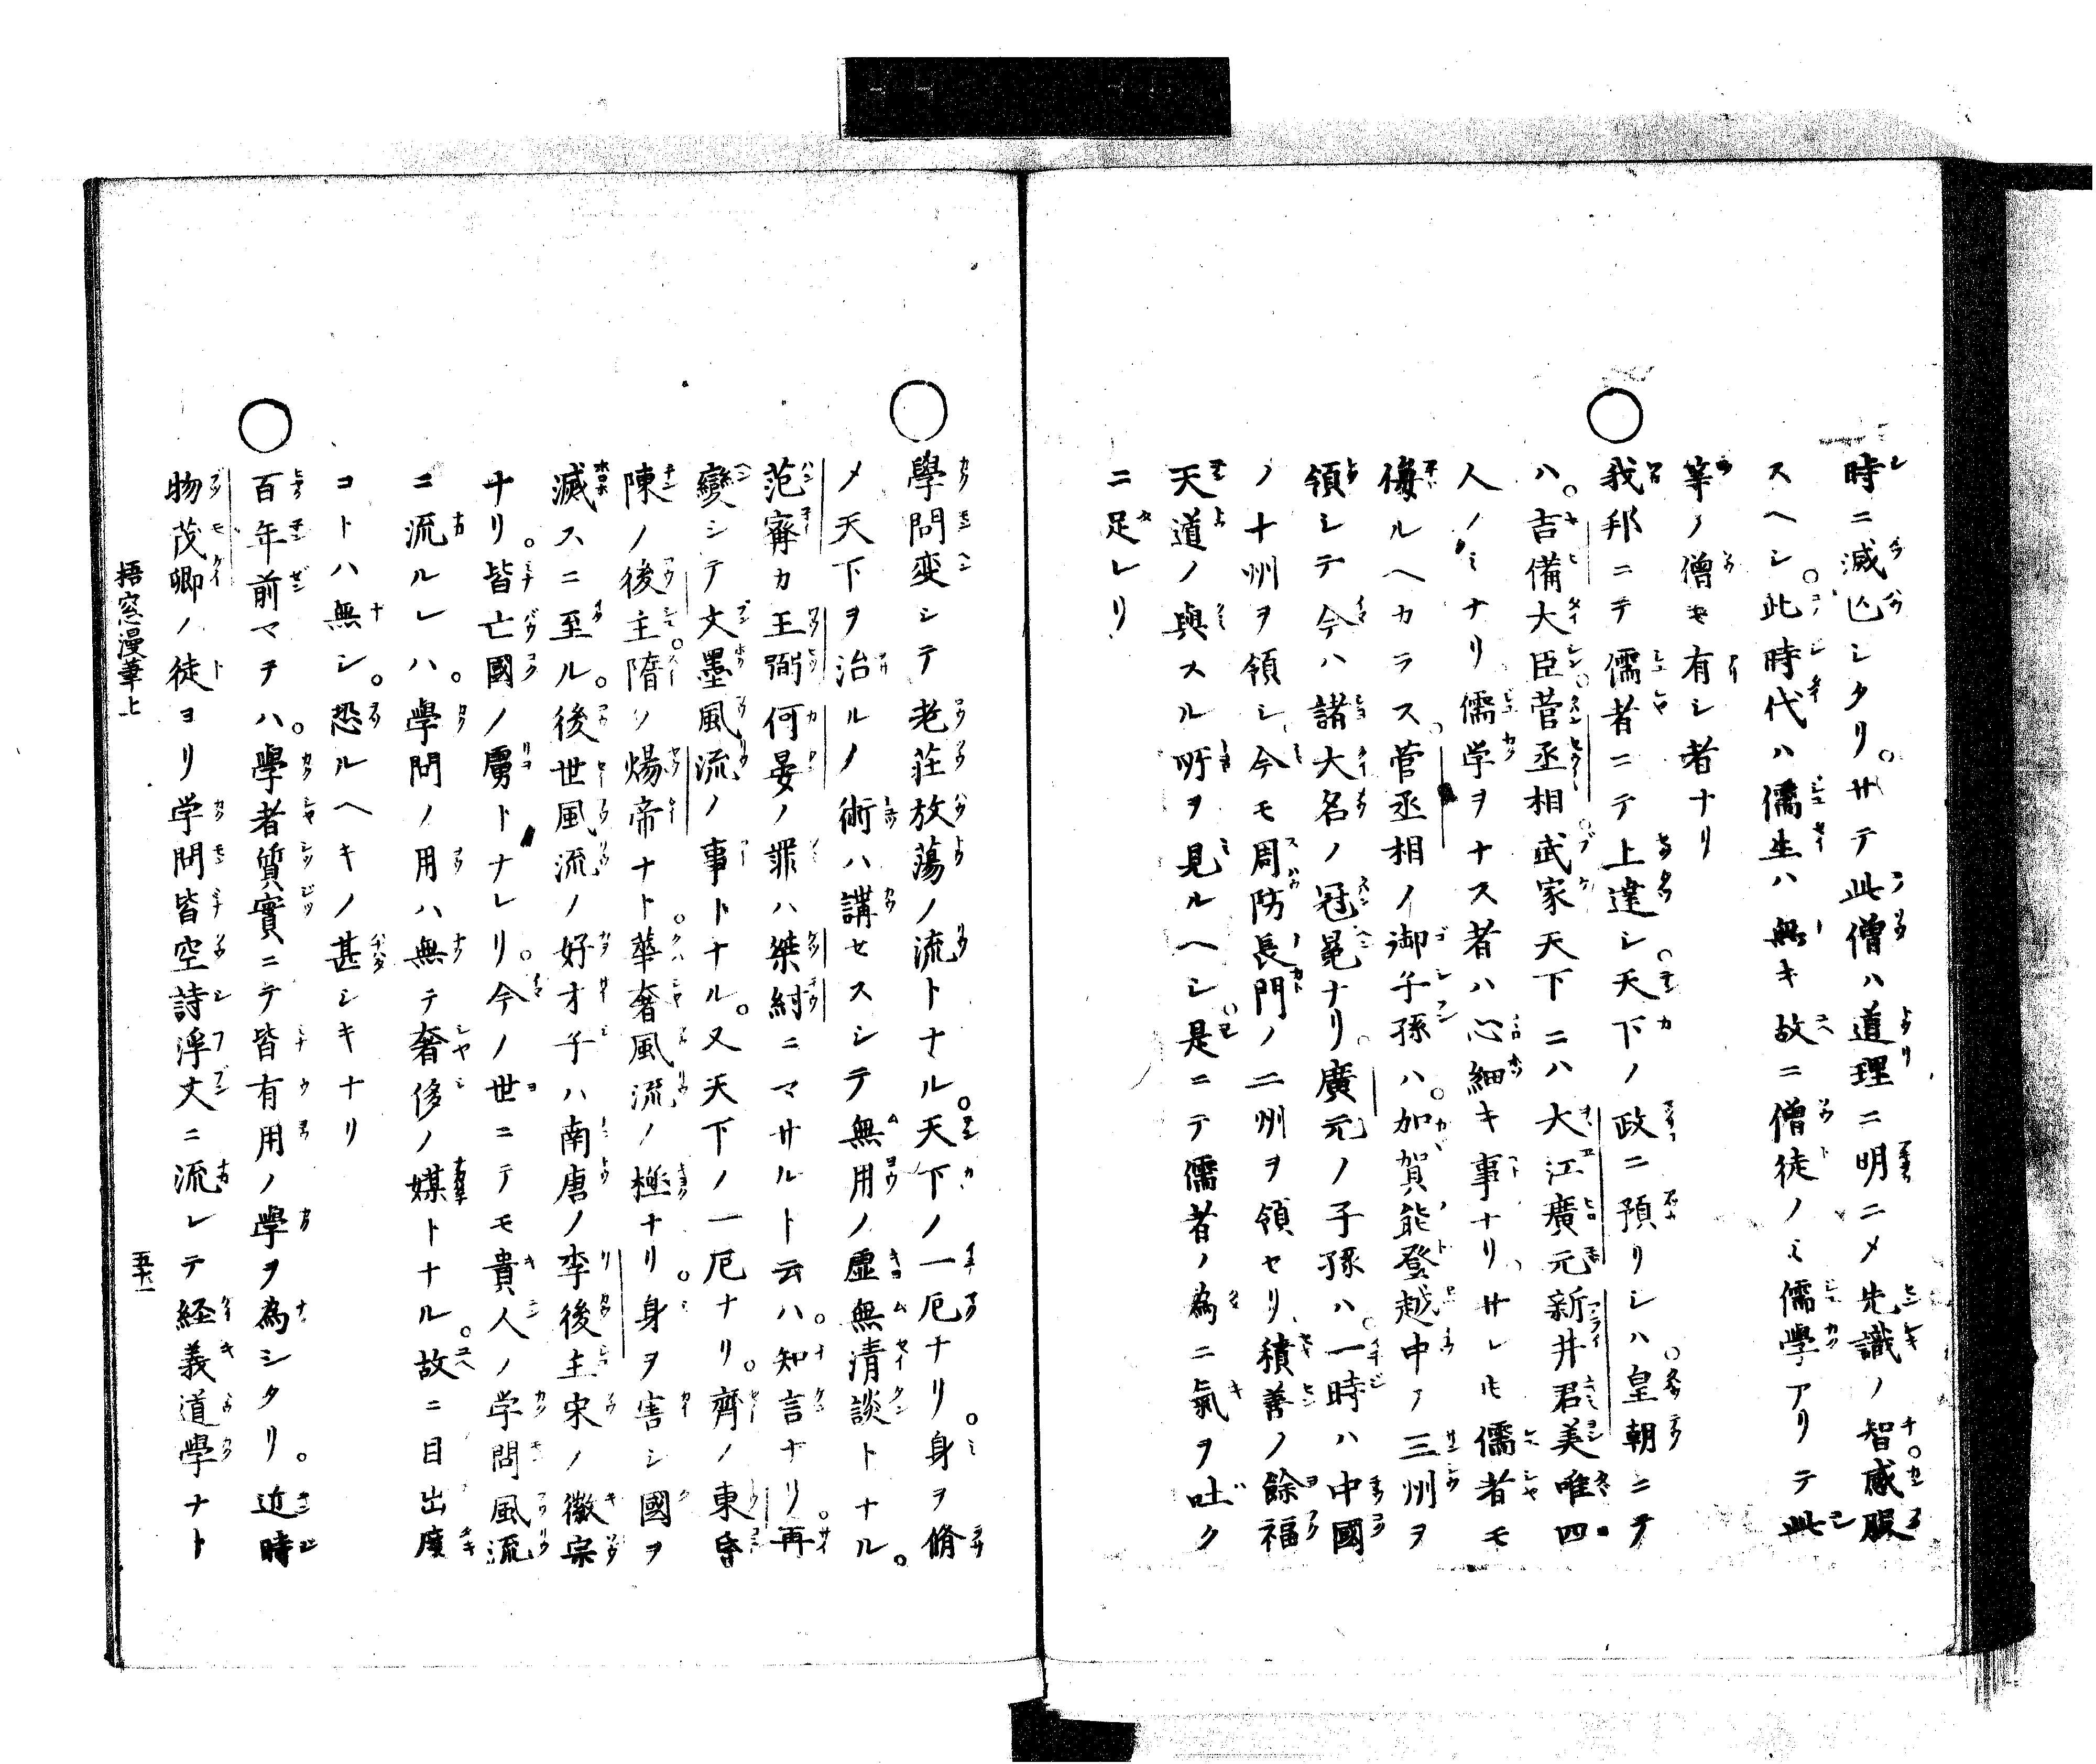 時ニ滅亡シタリ。サテ此僧ハ道理ニ明ニメ先識ノ智。感服
スヘシ。此時代ハ儒生ハ無キ故ニ僧徒ノミ儒學アリテ此
等ノ僧モ有シ者ナリ
○我邦ニテ儒者ニテ上達シ。天下ノ政ニ預リシハ。皇朝ニテ
ハ。吉備大臣。菅丞相。武家天下ニハ大江廣元新井君美唯四
人ノミナリ儒学ヲナス者ハ心細キ事ナリ。サレトモ儒者モ
侮ルヘカラス。菅丞相ノ御子孫ハ。加賀能登越中ノ三州ヲ
領シテ今ハ諸大名ノ冠冕ナリ。廣元ノ子孫ハ。一時ハ中國
ノ十州ヲ領シ今モ周防長門ノ二州ヲ領セリ積善ノ餘福
天道ノ與スル所ヲ見ルヘシ。是ニテ儒者ノ為ニ氣ヲ吐ク
ニ足レリ
○學問変シテ老荘放蕩ノ流トナル。天下ノ一厄ナリ。身ヲ脩
メ天下ヲ治ルノ術ハ講セスシテ無用ノ虚無清談トナル。
范甯カ王弼何晏ノ罪ハ桀紂ニマサルト云ハ。知言ナリ。再
變シテ文墨風流ノ事トナル。又天下ノ一厄ナリ。齊ノ東昏
陳ノ後主。隋ノ煬帝ナト。華奢風流ノ極ナリ。身ヲ害シ國ヲ
滅スニ至ル。後世風流ノ好才子ハ南唐ノ李後主宋ノ徽宗
ナリ。皆亡國ノ虜トナレリ。今ノ世ニテモ貴人ノ学問風流
ニ流ルレハ。學問ノ用ハ無テ奢侈ノ媒トナル。故ニ目出度
コトハ無シ。恐ルヘキノ甚シキナリ
○百年前マテハ。學者質實ニテ皆有用ノ學ヲ為シタリ。近時
物茂卿ノ徒ヨリ学問皆空詩浮文ニ流レテ経義道學ナト
梧窓漫筆上
五十二